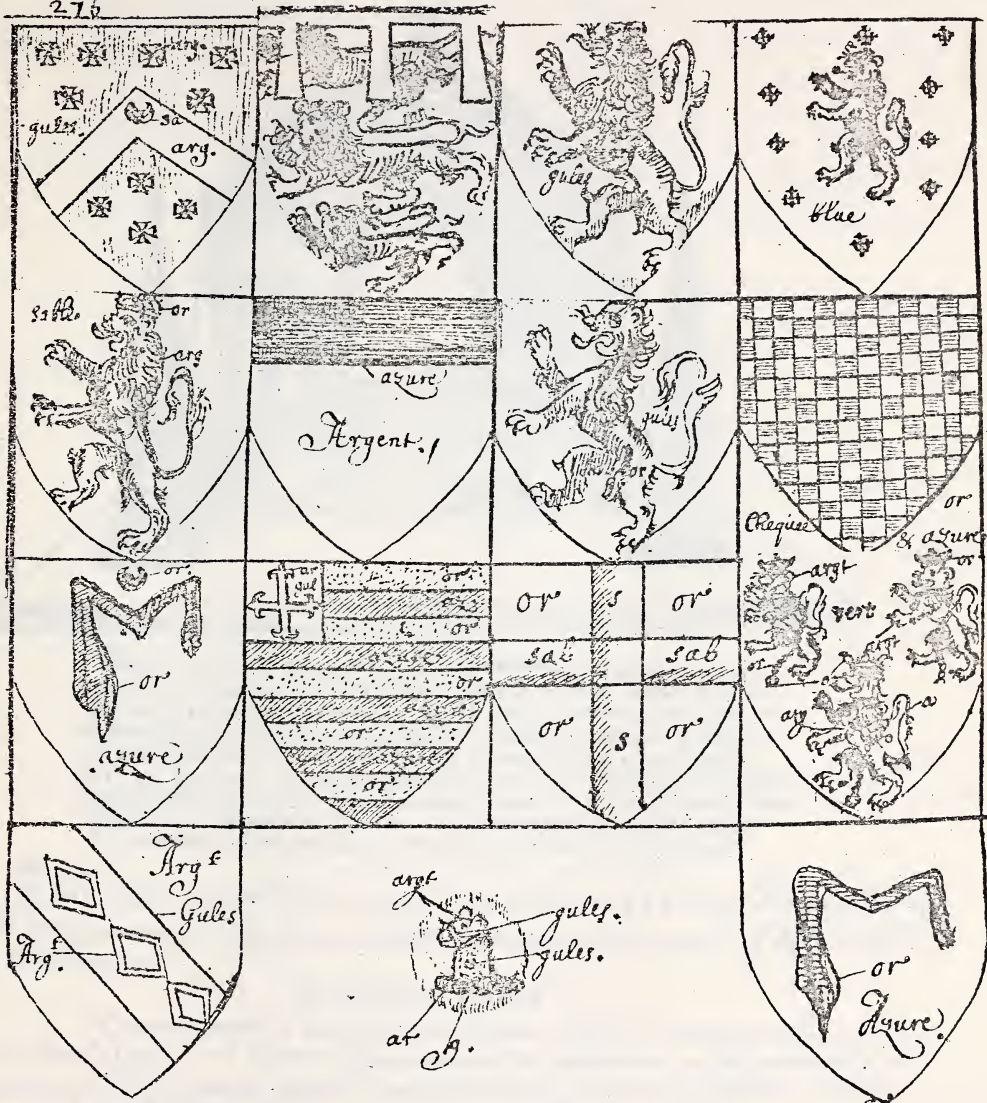 276
arg.
gules.
sa
arg.
gules
blue
Sable
or
arg
azure
Argent.
gules
or
Chequee
or
& azure
or
or
azure
ar
gul
or
or
azure
or
or
or
or
s
or
sab
sab
or
s
or
argt
or
vert
or
arg
a
Argt
Gules
Argt
argt
gules.
gules.
ar
g.
or
Azure